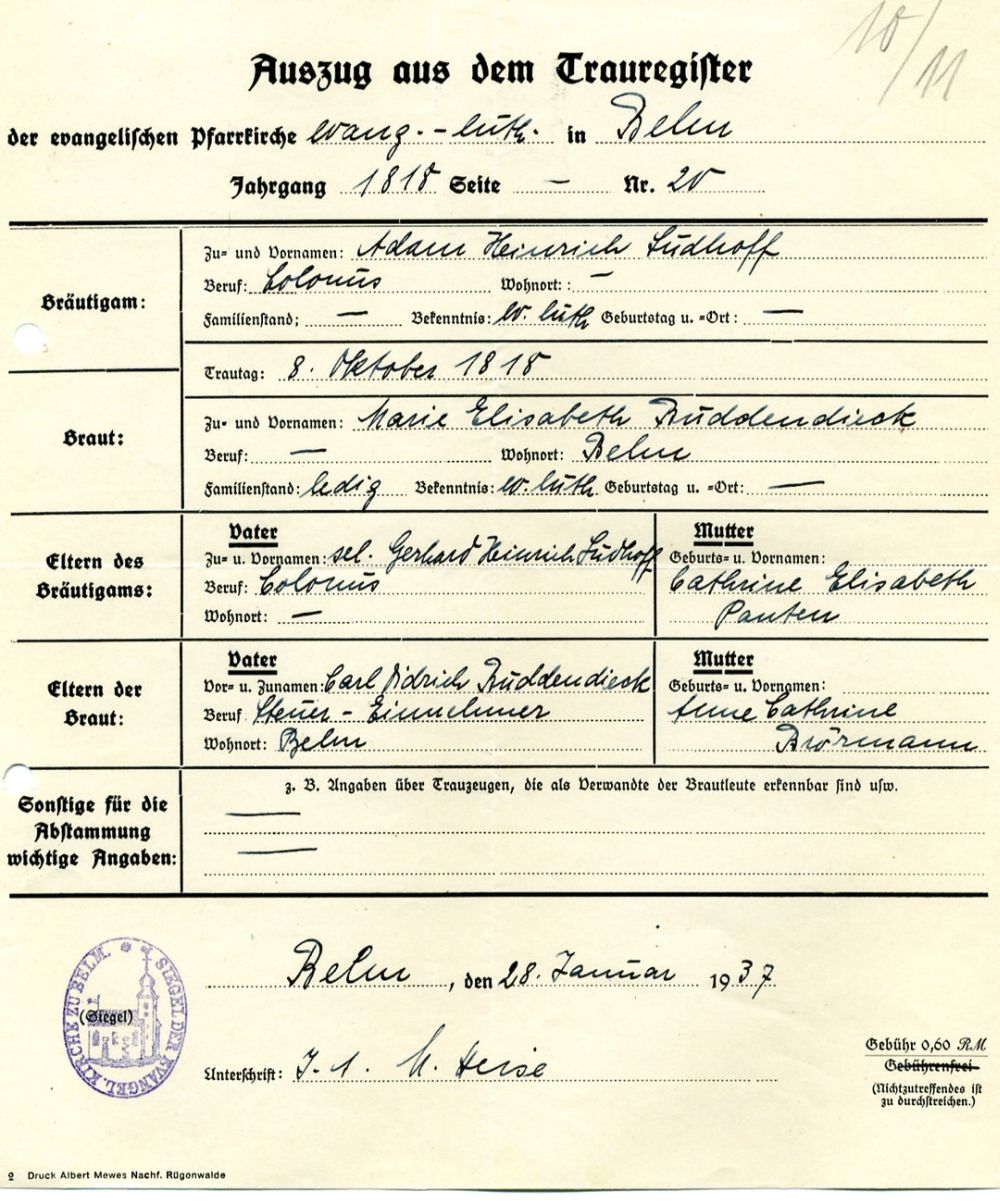 10/11
Auszug aus dem Trauregister
der evangelischen Pfarrkirche evang.-luth. in Belm
Jahrgang 1818 Seite — Nr. 20
Bräutigam:
Zu= und Vornamen: Adam Heinrich Sudhoff
Beruf: Colonus Wohnort: : —
Familienstand; — Bekenntnis: ev. luth Geburtstag u. =Ort: —
Trautag: 8. Oktober 1818
Braut:
Zu= und Vornamen: Marie Elisabeth Buddendieck
Beruf: — Wohnort: Belm
Familienstand: ledig Bekenntnis: ev. luth. Geburtstag u. =Ort: —
Eltern des Bräutigams:
Vater
Zu= u. Vornamen: sel. Gerhard Heinrich Sudhoff
Beruf: Colonus
Wohnort: —
Mutter
Geburts= u. Vornamen:
Cathrine Elisabeth
Panten
Eltern der Braut:
Vater
Vor= u. Zunamen: Carl Didrich Buddendieck
Beruf Steuer-Einnehmer
Wohnort: Belm
Mutter
Geburts= u. Vornamen:
Anne Cathrine
Brörmann
Sonstige für die
Abstammung
wichtige Angaben:
z. B. Angaben über Trauzeugen, die als Verwandte der Brautleute erkennbar sind usw.
—
—
Belm, den 28. Januar 1937
SIEGEL DER EVANGEL. KIRCHE ZU BELM.
(Siegel)
Unterschrift: I. A. M. Heise
Gebühr 0,60 RM
Gebührenfrei
(Nichtzutreffendes ist
zu durchstreichen.)
2 Druck Albert Mewes Nachf. Rügenwalde